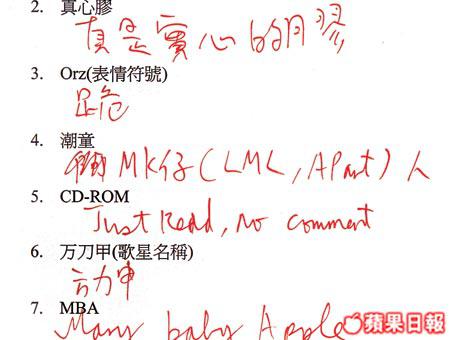 2. 真心膠
真是實心的膠
3. Orz(表情符號)
跪
4. 潮童
MK仔(LML, APart)人
5. CD-ROM
Just Read, No comment
6. 万刀甲(歌星名稱)
方力申
7. MBA
Many baby Apple
蘋果日報